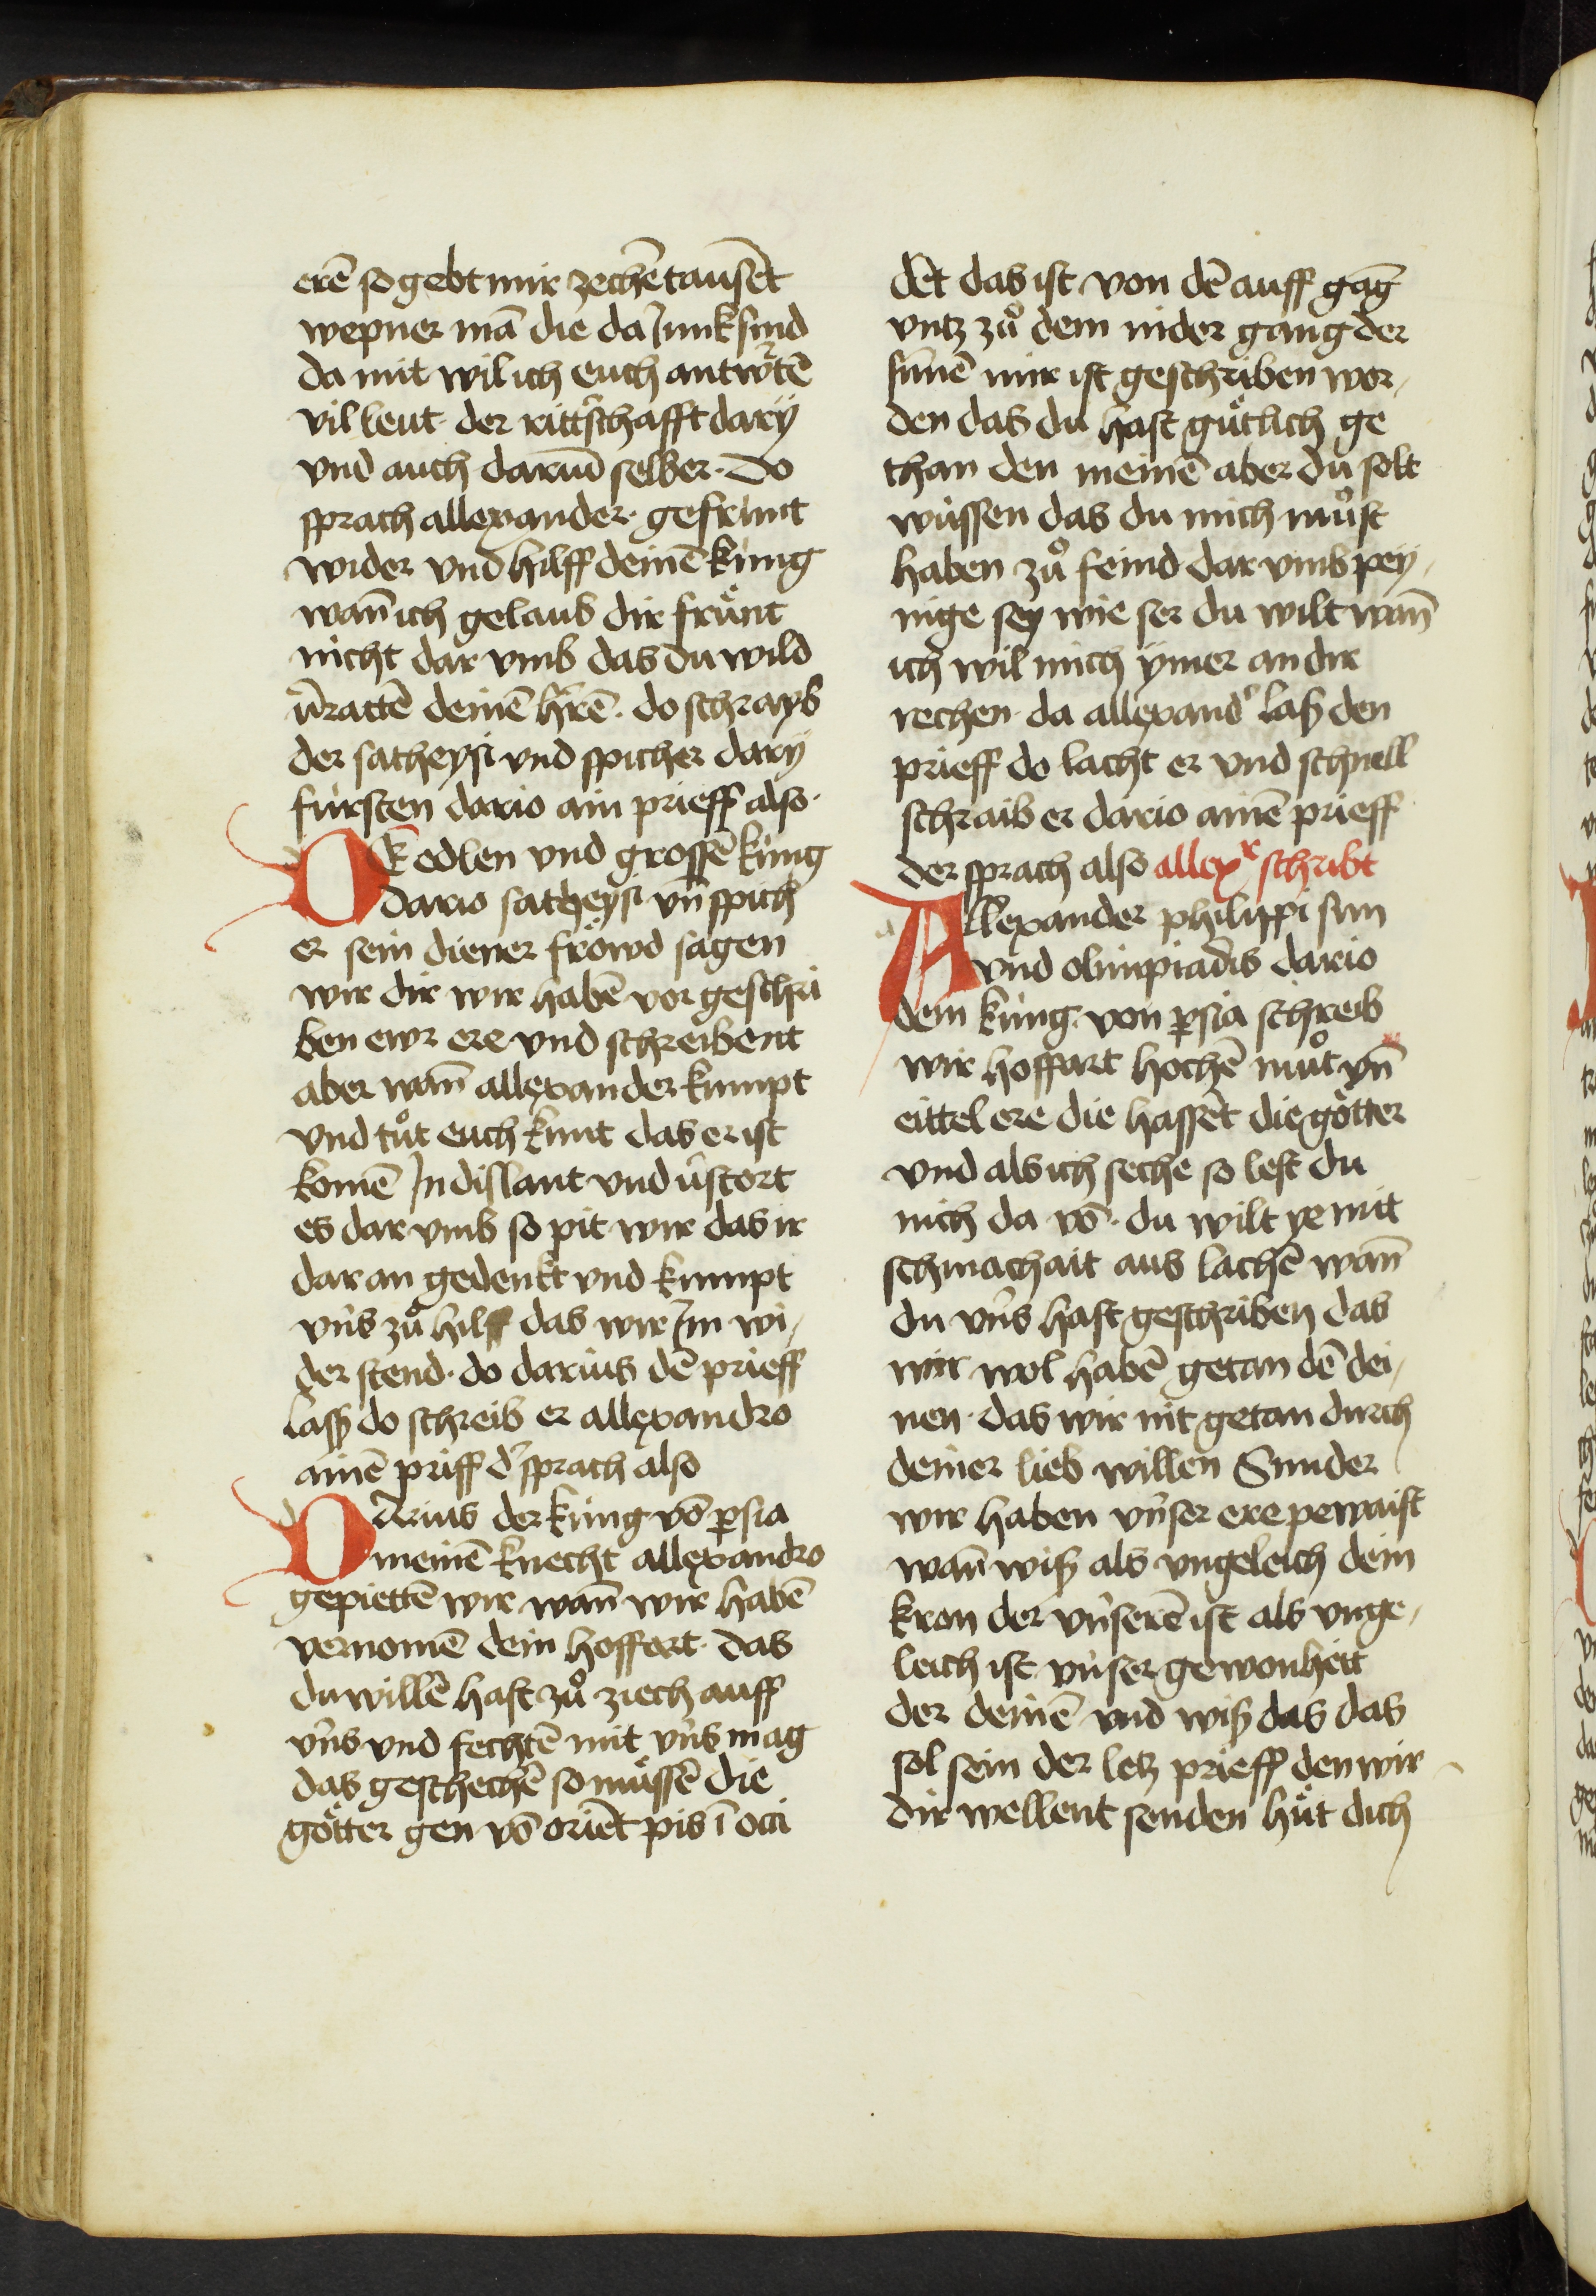 erē so gebt mir zechētausēt
wepner mā die da Junk sind
da mit wil ich euch antwˀtē
vil leut der rittˀschafft darÿ
vnd auch dariū selber · do
sprach allexander · gefrunt
wider vnd hilff deinē kung
wañ ich gelaub dir frünt
nicht dar vmb das du wild
v̄rattē deinē hˀrē · do schrayb
der satheysi vnd spicher darÿ
fürsten dario ain prieff also ·
DE edlen vnd grossē küng
dario satheysi vn̄ spich
er sein diener fröwd sagen
wir dir wir habē vor geschri
ben ewr ere vnd schreibent
aber wañ allexander kumpt
vnd tůt euch kunt das er ist
komē Jn dislant vnd v̄stort
es dar vmb so pit wir das ir
dar an gedenkt vnd kumpt
vn̄s zů hilff das wir Jm wi/
der stend · do darius dē prieff
lass do schreib er allexandro
ainē priff dˀ sprach also
DArius der küng vō persia
meinē knecht allexandro
gepiettē wir wañ wir habē
vernomē dein hoffart · das
du willē hast zů ziech auff
vn̄s vnd fechtē mit vn̄s mag
das geschechē so müssē die
götter gen vō oriēt pis ī occi
dēt das ist von dē auff gāg
vntz zů dem nider gang der
sunnē mir ist geschriben wor/
den das du hast gütlich ge
than den meinē aber du solt
wüssen das du mich můst
haben zů feind dar vmb pey/
nige sey wie ser du wilt wañ
ich wil mich ymer an dir
rechen · da allexandˀ las den
prieff do lacht er vnd schnell
schraib er dario ainē prieff
der sprach also allexr schribt
Allexander philippi sun
vnd olimpiadis dario
dem küng · von persia schreib
wir hoffart hochē můt vn̄
eittel ere die hassēt die götter
vnd als ich seche so lest du
nich da vō · du wilt ye mit
schmachait aus lachē wañ
du vn̄s hast geschriben das
wir wol habē getan dē dei/
nen · das wir nit getan durch
deiner lieb willen Sunder
wir haben vn̄ser ere pewaist
wañ wiß als vngeleich dem
kron der vn̄serē ist als vnge/
leich ist vn̄ser gewonheit
der deinē vnd wiß das das
sol sein der letz prieff den wir
dir wellent senden hüt dich